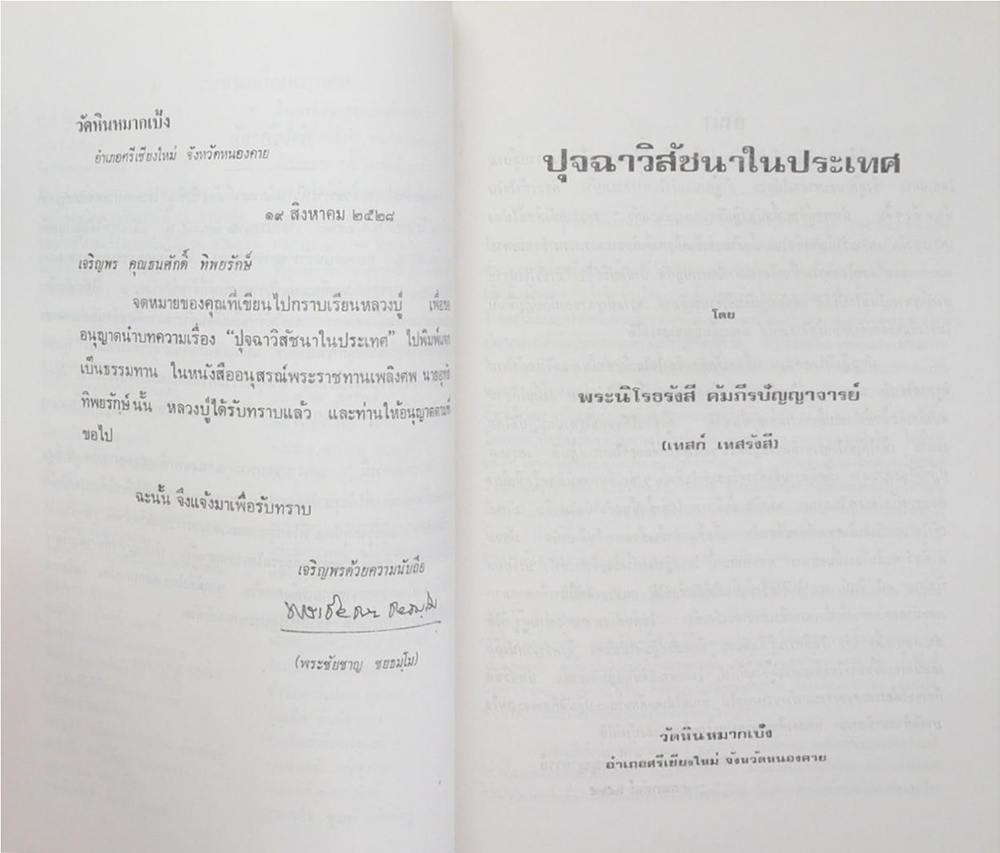 วัดหินหมากเป้ง
อำเภอศรีเชียงใหม่ จังหวัดหนองคาย
๑๙ สิงหาคม ๒๕๒๘
เจริญพร คุณธนศักดิ์ ทิพยรักษ์
จดหมายของคุณที่เขียนไปกราบเรียนหลวงปู่ เพื่อข
อนุญาตนำบทความเรื่อง “ปุจฉาวิสัชนาในประเทศ” ไปพิมพ์แจ
เป็นธรรมทาน ในหนังสืออนุสรณ์พระราชทานเพลิงศพ
ทิพยรักษ์นั้น หลวงปู่ได้รับทราบแล้ว และท่านให้อนุญาตตามที่
ขอไป
ฉะนั้น จึงแจ้งมาเพื่อรับทราบ
เจริญพรด้วยความนับถือ
(พระชัยชาญ ชยธมฺโม)
ปุจฉาวิสัชนาในประเทศ
โดย
พระนิโรธรังสี คัมภีรปัญญาจารย์
(เทสก์ เทสรังสี)
วัดหินหมากเป้ง
อำเภอศรีเชียงใหม่ จังหวัดหนองคาย